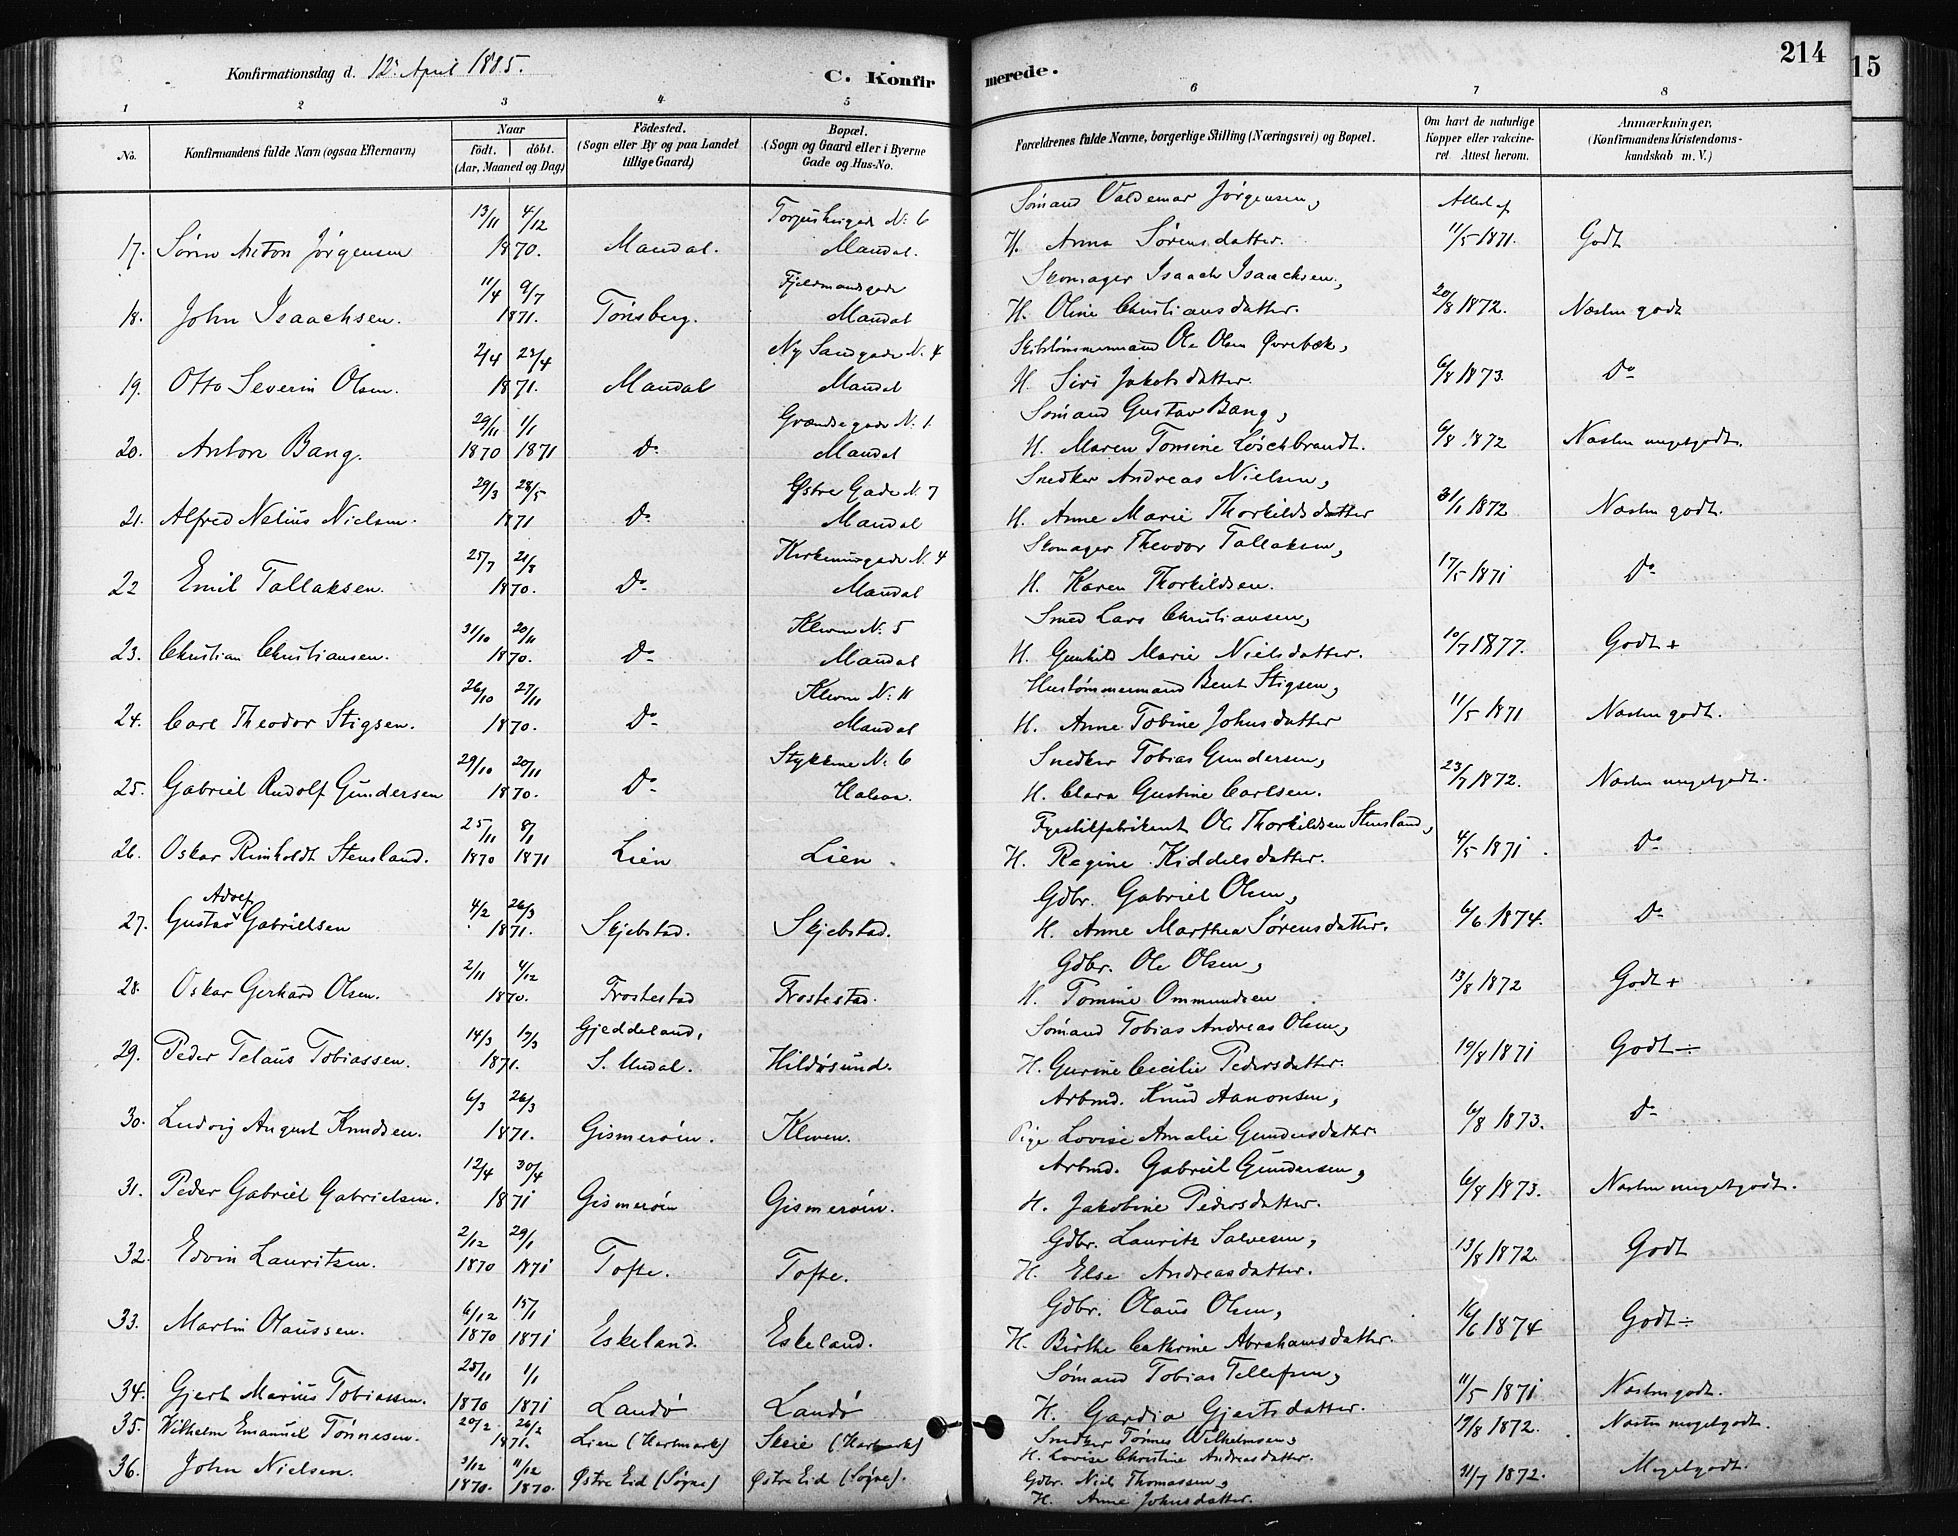 Konfirmationsdag d. 12 April 1885.
C. Konfirmerede.
214
15
1 2 3 4 5 6 7 8
No.
Konfirmandens fulde Navn (ogsaa Efternavn)
Naar
Födt. döbt.
(Aar, Maaned og Dag)
Födested.
(Sogn eller By og paa Landet
tillige Gaard)
Bopæl.
(Sogn og Gaard eller i Byerne
Gade og Hus-No.
Forældrenes fulde Navne, borgerlige Stilling (Næringsvei) og Bopæl.
Om havt de naturlige
Kopper eller vakcine-
ret Attest herom.
Anmærkninger,
(Konfirmandens Kristendoms-
kundskab m. V.)
13/11 4/12 N. 6 Sömand Valdemar Jørgensen, Attest af
17. Sörin Anton Jörgensen 1870. Mandal. Mandal. H. Anna Sörensdatter. 11/5 1871. Godt
11/4 9/7 Fjeldmandsgade Skomager Isaach Isaachsen,
18. John Isaachsen. 1871. Tönsberg. Mandal H. Oline Christiansdatter. 20/8 1872. Næsten godt
2/4 23/4 Ny Sandgade N. 4 Skibstömmermand Ole Olsen Øvrebæk,
19. Otto Severin Olsen. 1871. Mandal Mandal H. Siri Jakobsdatter. 6/8 1873. Do
29/11 1/1 Grændsegade N. 1. Sömand Gustav Bang,
20. Anton Bang. 1870 1871 Do Mandal H. Maren Tomine Löschbrandt. 6/8 1872 Næsten megetgodt.
29/3 28/5 Østre Gade N. 7 Snedker Andreas Nielsen,
21. Alfred Nelius Nielsen. 1871 Do Mandal H. Anne Marie Thorkildsdatter 31/1 1872 Næsten godt.
25/7 21/8 Kirkemurgade N. 4 Skomager Theodor Tallaksen,
22 Emil Tallaksen. 1870. Do Mandal H. Karen Thorkildsen. 17/5 1871 Do
31/10 20/11 Kleven N. 5 Smed Lars Christiansen,
23. Christian Christiansen. 1870. Do Mandal H. Gunhild Marie Nielsdatter. 10/7 1877. Godt +
26/10 27/11 Kleven N. 11 Hustömmermand Bent Stigsen,
24. Carl Theodor Stigsen. 1870. Do Mandal H. Anne Tobine Johnsdatter 11/5 1871 Næsten godt.
29/10 20/11 Stykkene N. 6 Snedker Tobias Gundersen,
25. Gabriel Rudolf Gundersen 1870. Do Halsaa. H. Clara Gustine Carlsen. 23/7 1872. Næsten megetgodt.
25/11 8/1 Fyrstikfabrikant Ole Thorkildsen Stensland,
26. Oskar Reinholdt Stensland. 1870 1871 Lien Lien. H. Regine Kiddelsdatter. 4/5 1871. Do
Adolf 4/2 26/3 Gdbr. Gabriel Olsen,
27. Gustav Gabrielsen 1871. Skjebstad. Skjebstad. H. Anne Marthea Sörensdatter. 6/6 1874. Do
2/11 4/12 Gdbr. Ole Olsen,
28. Oskar Gerhard Olsen. 1870. Frostestad Frostestad. H. Tomine Ommundsen 13/8 1872 Godt +
14/3 17/3 Gjeddeland, Sömand Tobias Andreas Olsen,
29. Peder Telaus Tobiassen. 1871. S. Undal. Hildøsund. H. Gurine Cecilie Pedersdatter. 19/8 1871 Godt ÷
6/3 26/3 Arbmd. Knud Aanonsen,
30. Ludvig August Knudsen. 1871. Gismeröin. Kleven. Pige Lovise Amalie Gundersdatter 6/8 1873. Do
12/4 30/4 Arbmd. Gabriel Gundersen,
31. Peder Gabriel Gabrielsen. 1871 Gismeröin Gismeröin. H. Jakobine Pedersdatter. 6/8 1873. Næsten megetgodt.
2/12 29/1 Gdbr. Lauritz Salvesen,
32. Edvin Lauritsen. 1870 1871 Tofte. Tofte. H. Else Andreasdatter. 13/8 1872. Godt
6/12 15/1 Gdbr. Olaus Olsen,
33. Martin Olaussen. 1870 1871 Eskeland. Eskeland. H. Birthe Cathrine Abrahamsdatter. 16/6 1874 Godt ÷
25/11 1/1 Sömand Tobias Tellefsen,
34. Gjert Marius Tobiassen. 1870 1871 Landø Landø H. Gardia Gjertsdatter. 11/5 1871 Næsten godt.
35. Wilhelm Emanuel Tönnesen. 20/2 26/2 1871. Lien (Hartmark) Skeie (Hartmark) Snedker Tönnes Wilhelmsen, 19/8 1872. Næsten megetgodt.
H. Lovise Christine Andreasdatter.
36. John Nielsen. 3/12 11/12 Østre Eid (Søgne) Østre Eid (Søgne). Gdbr. Niels Thomassen, 21/7 1872. Megetgodt.
1870. 1870. H. Anne Johnsdatter.